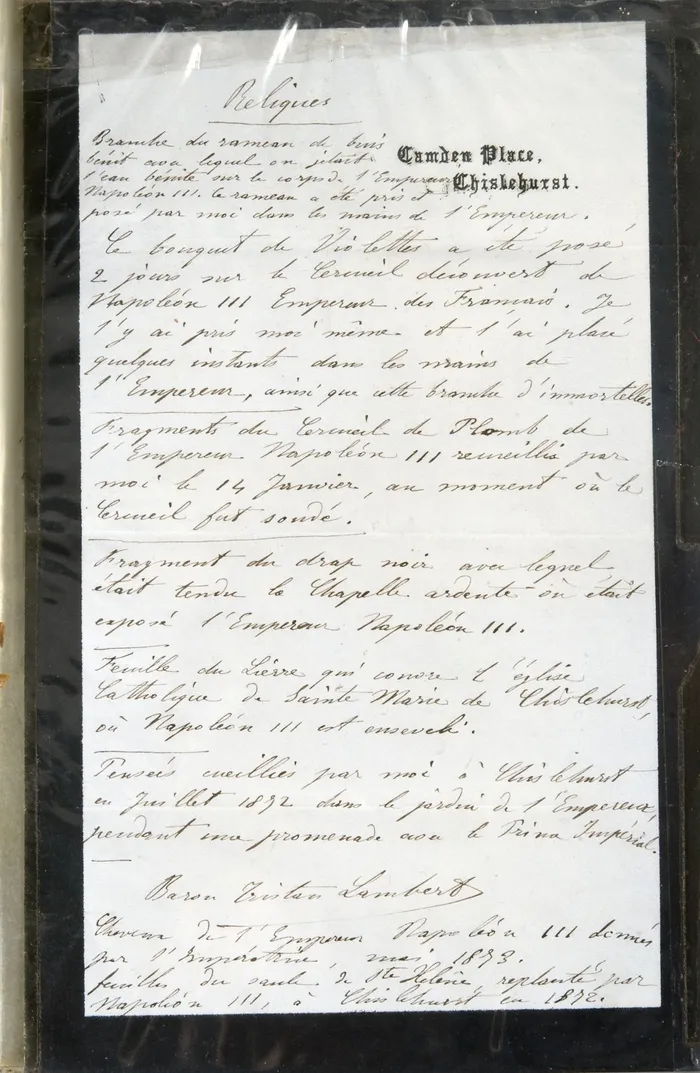 Reliques
Camden Place,
Chislehurst.
Branche du rameau de buis
bénit avec lequel on jetait
l'eau bénite sur le corps de l'Empereur
Napoléon III. le rameau a été pris et
posé par moi dans les mains de l'Empereur.
Ce bouquet de Violettes a été posé
2 jours sur le Cercueil découvert de
Napoléon III Empereur des Français. Je
l'y ai pris moi même et l'ai placé
quelques instants dans les mains de
l'Empereur, ainsi que cette branche d'immortelles.
Fragments du Cercueil de Plomb de
l'Empereur Napoléon III recueillis par
moi le 14 Janvier, au moment où le
Cercueil fut soudé.
Fragment du drap noir avec lequel
était tendu la Chapelle ardente où était
exposé l'Empereur Napoléon III.
Feuille du Lierre qui couvre l'église
Catholique de Sainte Marie de Chislehurst,
où Napoléon III est enseveli.
Pensées cueillies par moi à Chislehurst
en Juillet 1872 dans le jardin de l'Empereur,
pendant une promenade avec le Prince Impérial.
Baron Tristan Lambert
Cheveux de l'Empereur Napoléon III donnés
par l'Impératrice, mars 1873.
feuilles du saule de Ste Hélène, replanté par
Napoléon III, à Chislehurst en 1872.